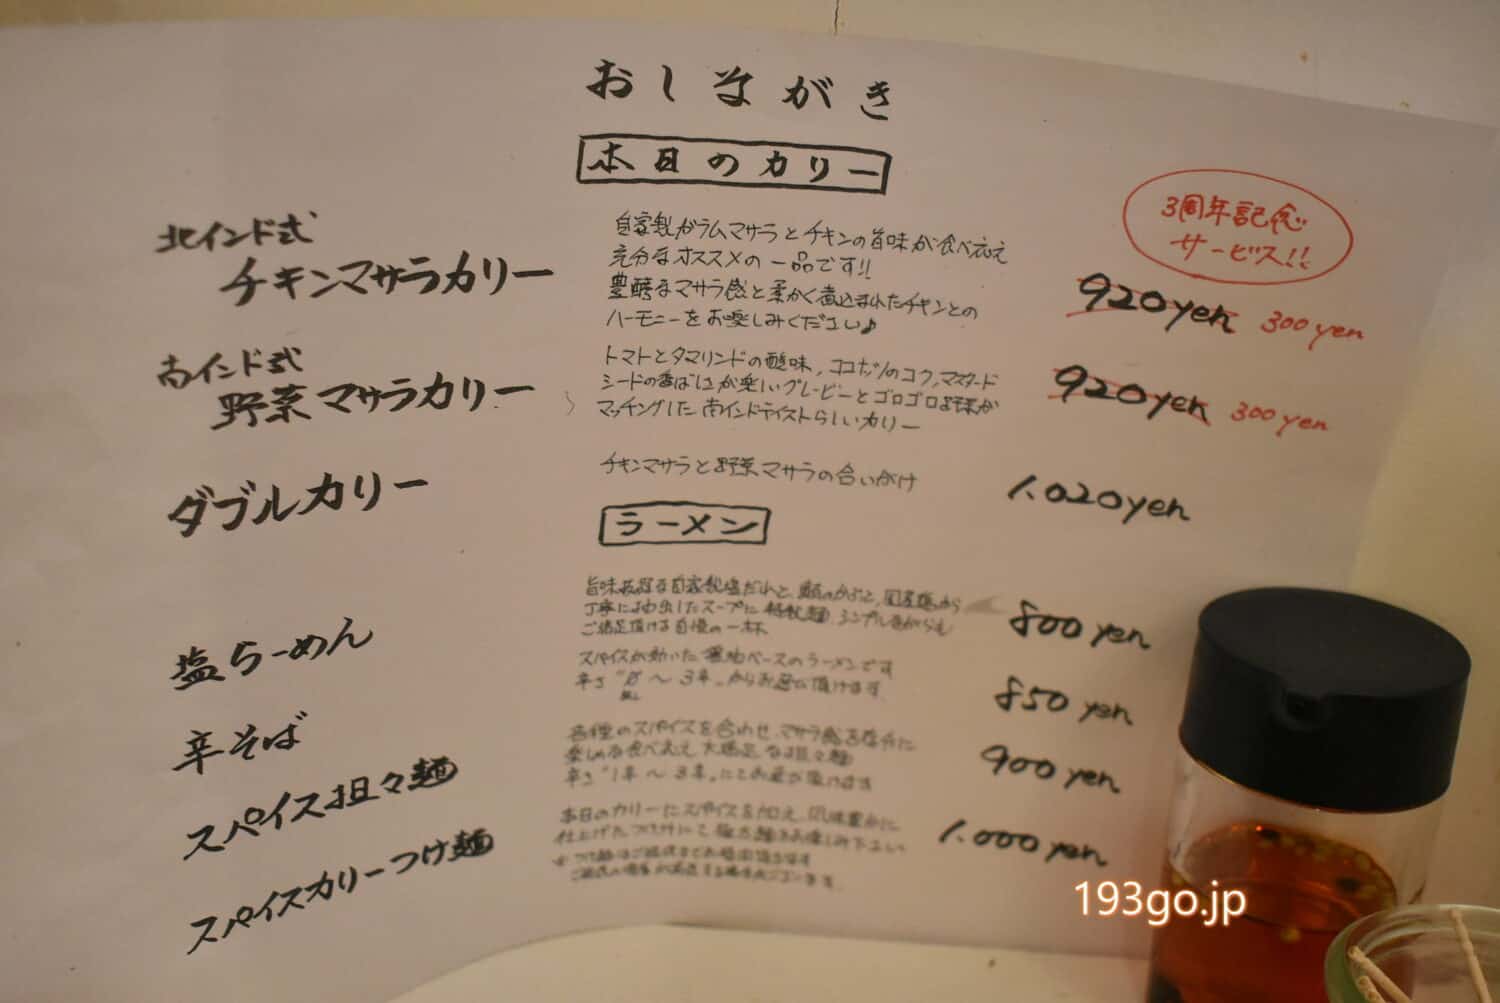 おしながき
本日のカリー
3周年記念
サービス!!
北インド式
チキンマサラカリー
自家製ガラムマサラとチキンの旨味が食べ応え
充分なオススメの一品です!!
豊醇なマサラ感と柔かく煮込まれたチキンとの
ハーモニーをお楽しみください♪
920yen 300yen
南インド式
野菜マサラカリー
トマトとタマリンドの酸味、ココナッツのコク、マスタード
シードの香ばしさが楽しいグレービーとゴロゴロ野菜が
マッチングした南インドテイストらしいカリー
920yen 300yen
ダブルカリー
チキンマサラと野菜マサラの合いがけ
1.020yen
ラーメン
塩らーめん
自家製塩だれと、
丁寧に スープに 麺。シンプルながらも
ご満足頂ける自慢の一杯
800yen
辛そば
スパイスが効いた醤油ベースのラーメンです
辛さ"0〜3辛"からお選び頂けます。
850yen
スパイス担々麺
各種のスパイスを合わせ、マサラ感
楽しめる食べ応え大満足な担々麺
辛さ"1辛〜3辛"にてお選び頂けます
900yen
スパイスカリーつけ麺
本日のカリーにスパイスを加え、風味豊かに
仕上げたつけ汁にて 麺をお楽しみ下さい
1.000yen
193go.jp